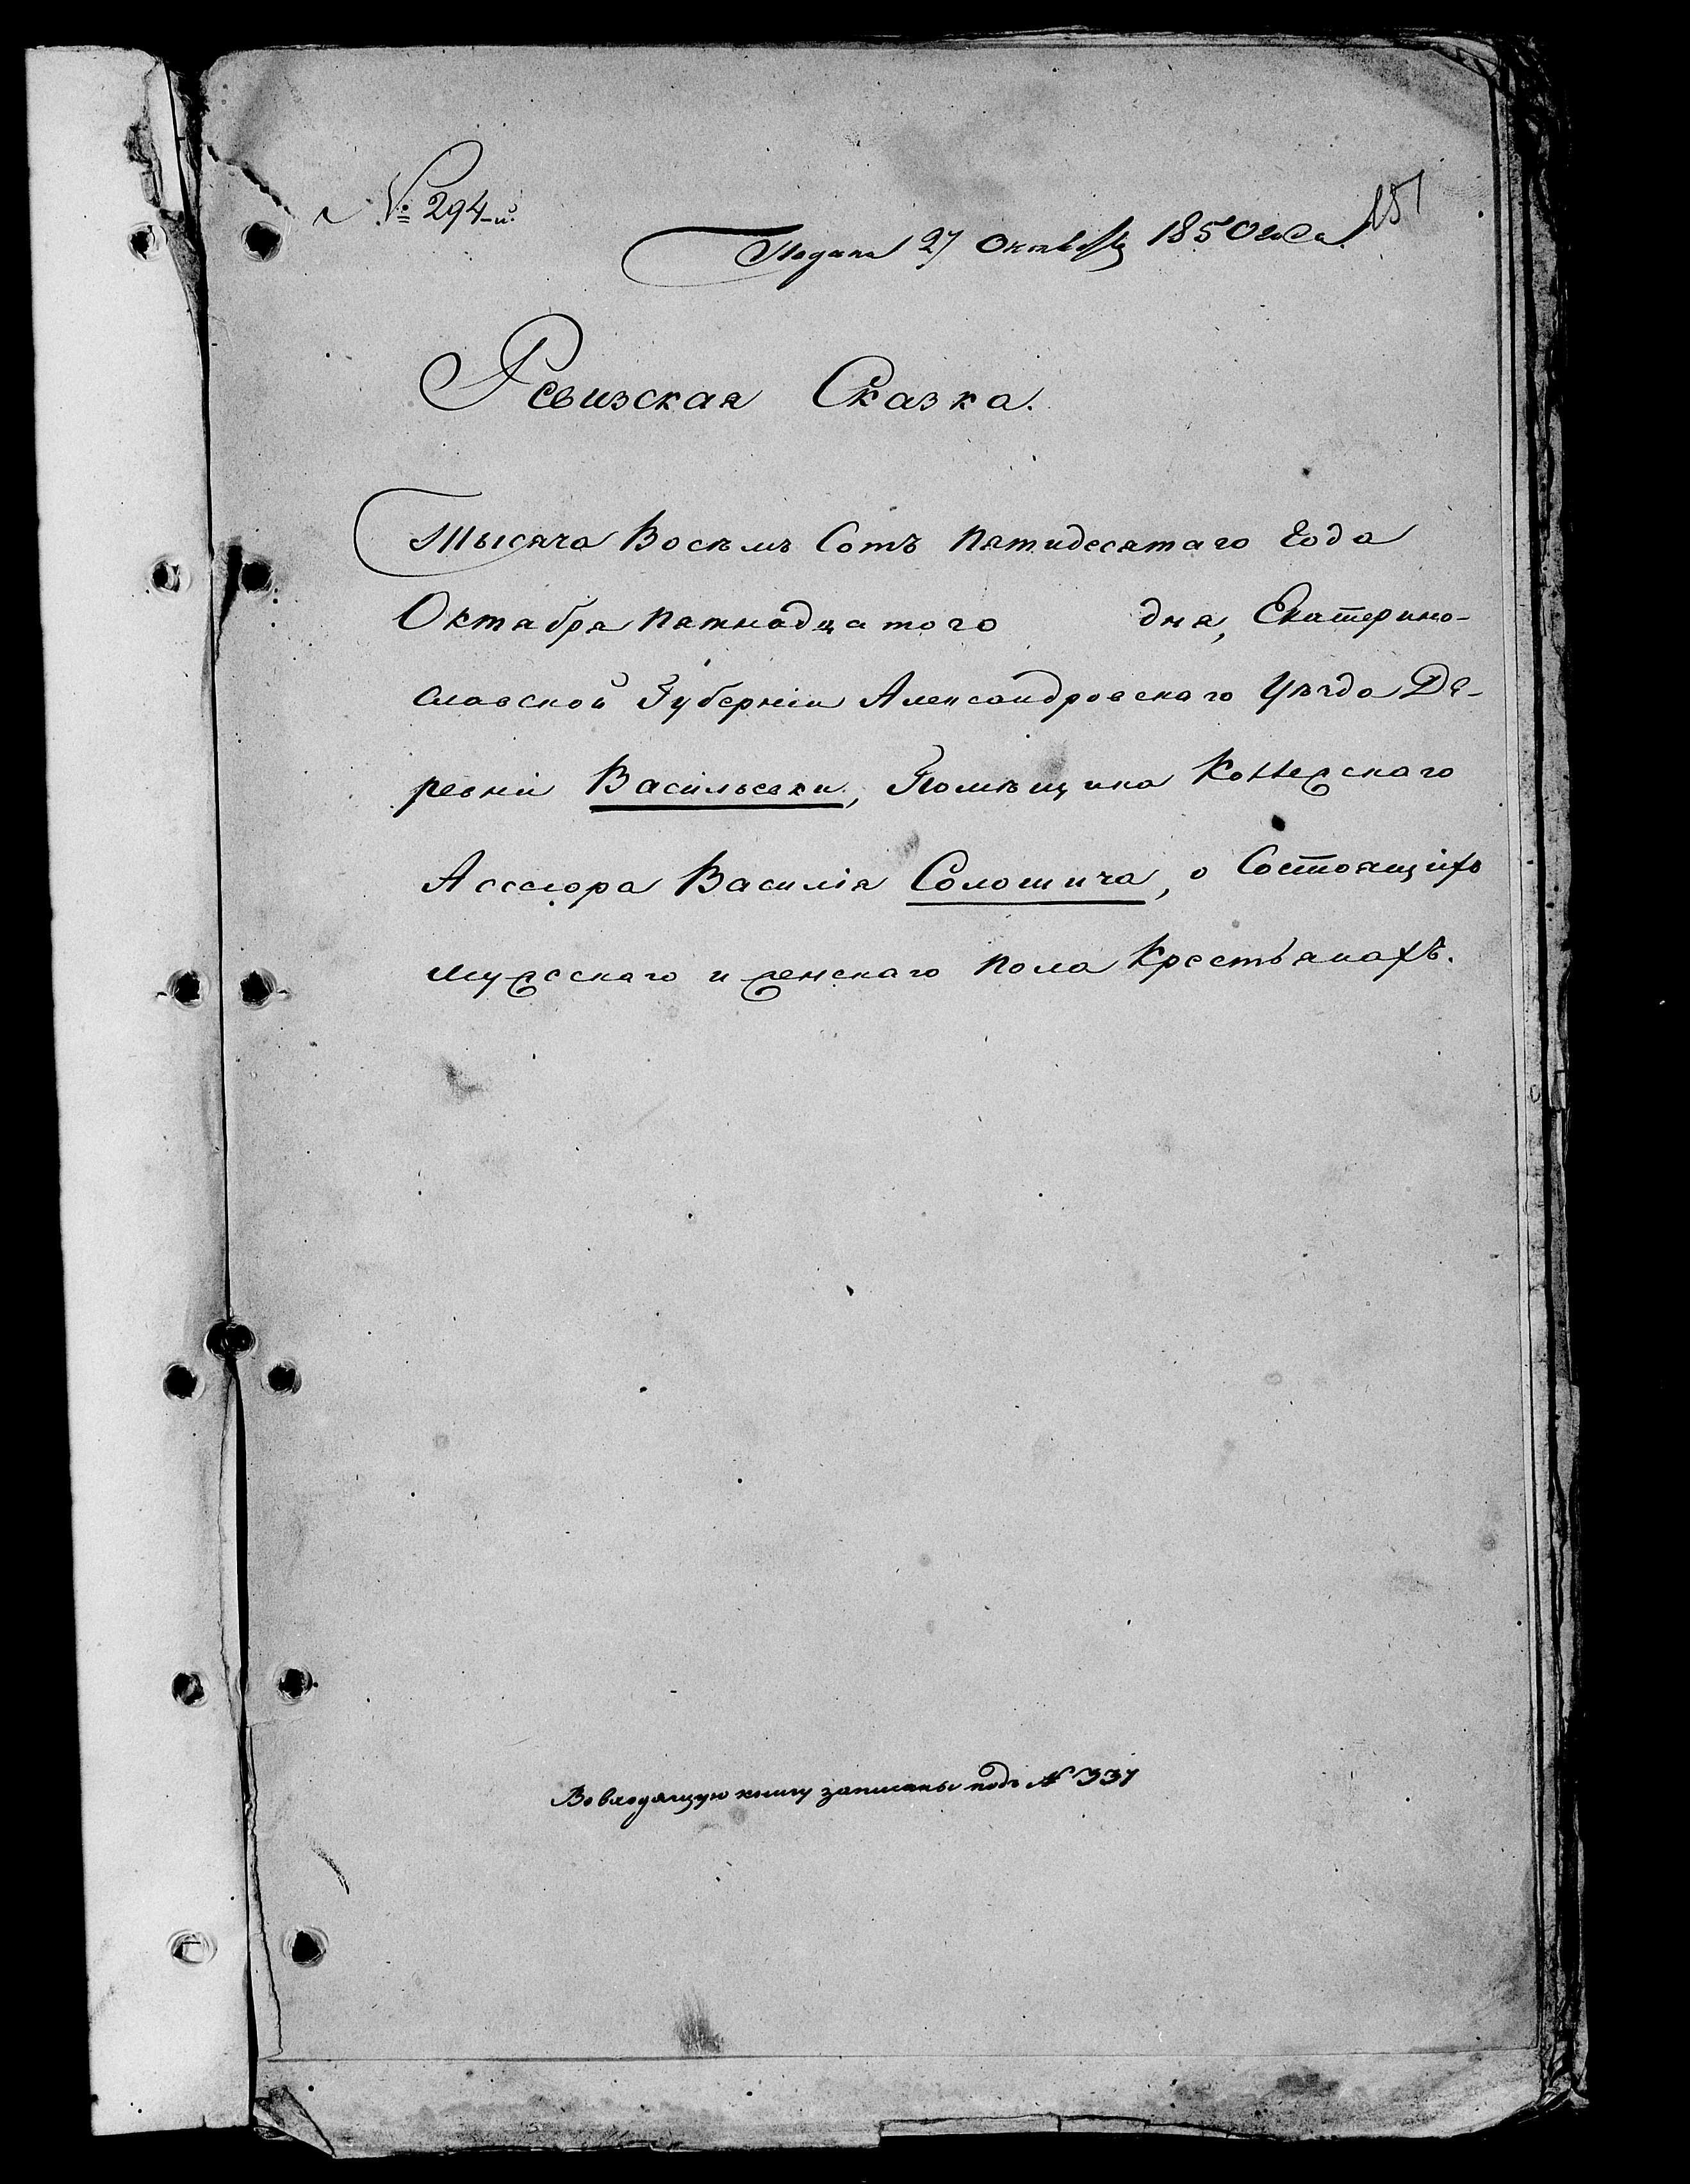 № 294-й.
Подана 27 Октября 1850 года
Ревизская Сказка.
Тысяча Восемь Сотъ пятидесятаго года
Октября пятнадцатого дня, Екатерино-
славской Губерніи Александровскаго Уѣзда Де-
ревни Васильевки, Помѣщика Коллежскаго
Ассесора Василія Солошича, о Состоящихъ
мужескаго и женскаго пола Крестьянахъ.
Во входящую книгу записаны подъ № 331